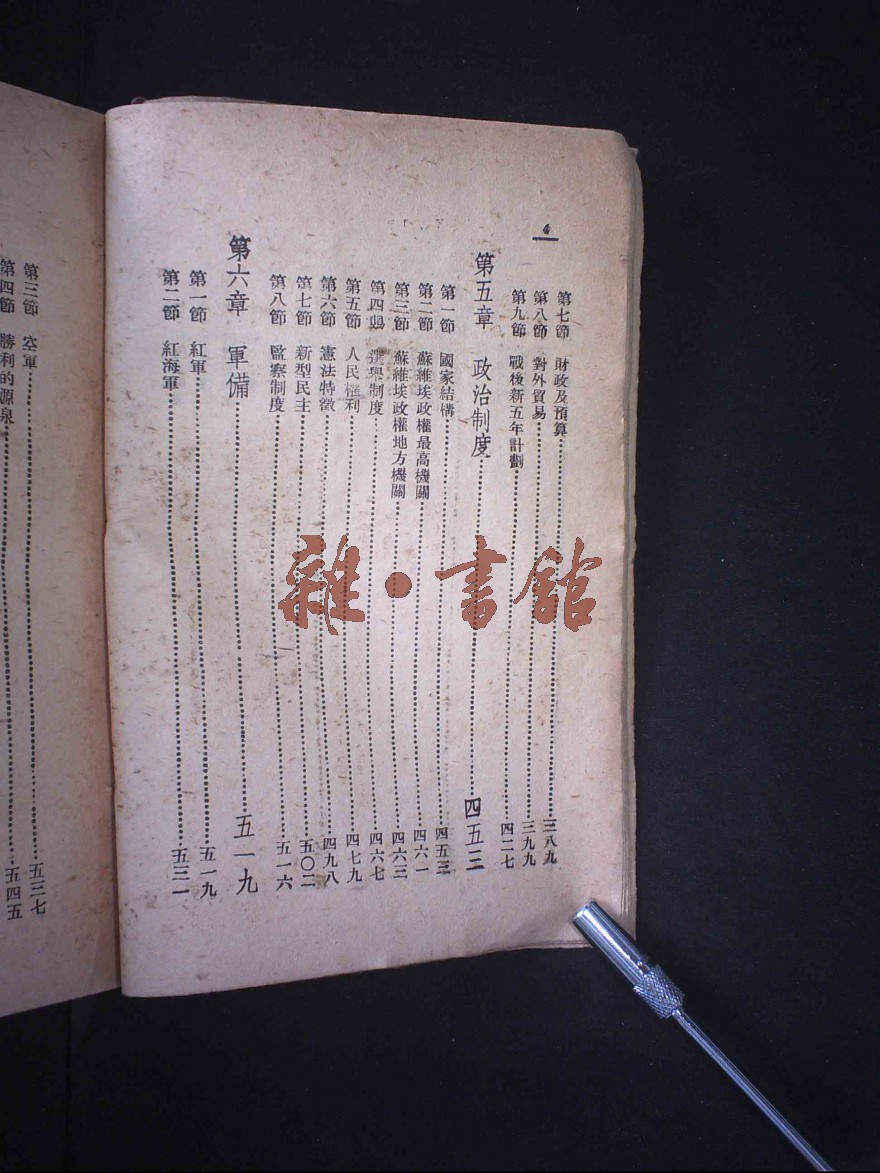 4
第七節 財政及預算 三八九
第八節 對外貿易 三九九
第九節 戰後新五年計劃 四二七
第五章 政治制度 四五三
第一節 國家結構 四五三
第二節 蘇維埃政權最高機關 四六一
第三節 蘇維埃政權地方機關 四六三
第四節 選舉制度 四六七
第五節 人民權利 四七九
第六節 憲法特徵 四九八
第七節 新型民主 五〇二
第八節 監察制度 五一六
第六章 軍備 五一九
第一節 紅軍 五一九
第二節 紅海軍 五三一
第三節 空軍 五三七
第四節 勝利的源泉 五四五
雜·書館